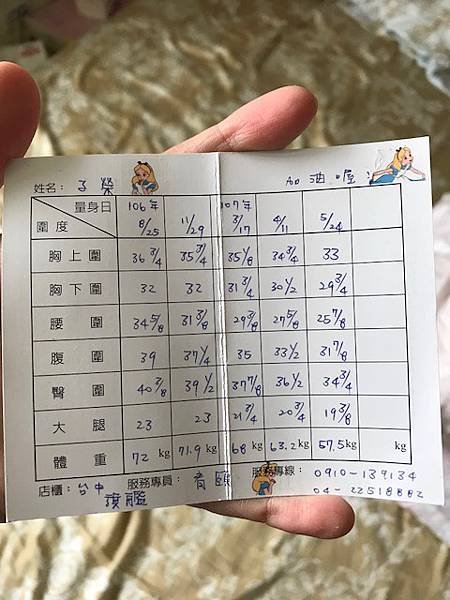 姓名：子榮 加油喔
量身日 106年 107年
圍度 8/25 11/29 3/17 4/11 5/24
胸上圍 36 3/4 35 3/4 35 1/8 34 3/4 33
胸下圍 32 32 31 3/4 30 1/2 29 3/4
腰圍 34 5/8 31 3/8 29 3/8 27 5/8 25 7/8
腹圍 39 37 1/4 35 33 1/2 31 7/8
臀圍 40 3/8 39 1/2 37 7/8 36 1/2 34 3/4
大腿 23 23 21 3/4 20 3/4 19 3/8
體重 72 kg 71.9 kg 68 kg 63.2 kg 57.5 kg kg
店櫃：台中旗艦 服務專員： 服務專線：0910-139134
04-22518882